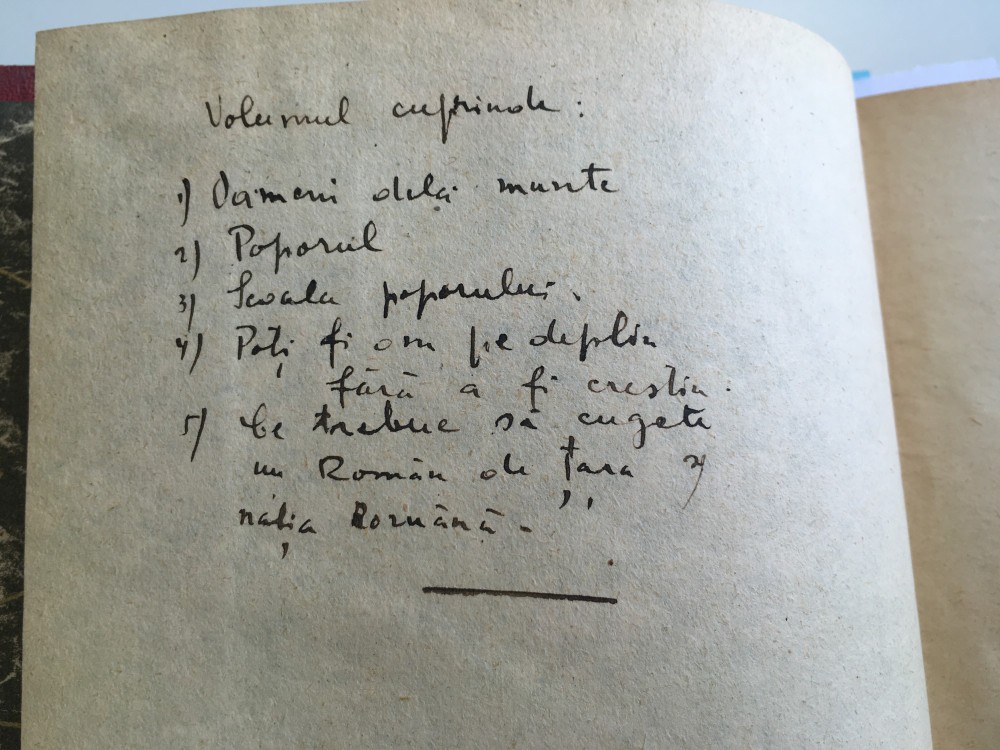 Volumul cuprinde:
1) Oameni dela munte
2) Poporul
3) Scoala poporului.
4) Poți fi om pe deplin
fără a fi crestin.
5) Ce trebue să cugete
un Român de țara și
nația Română.